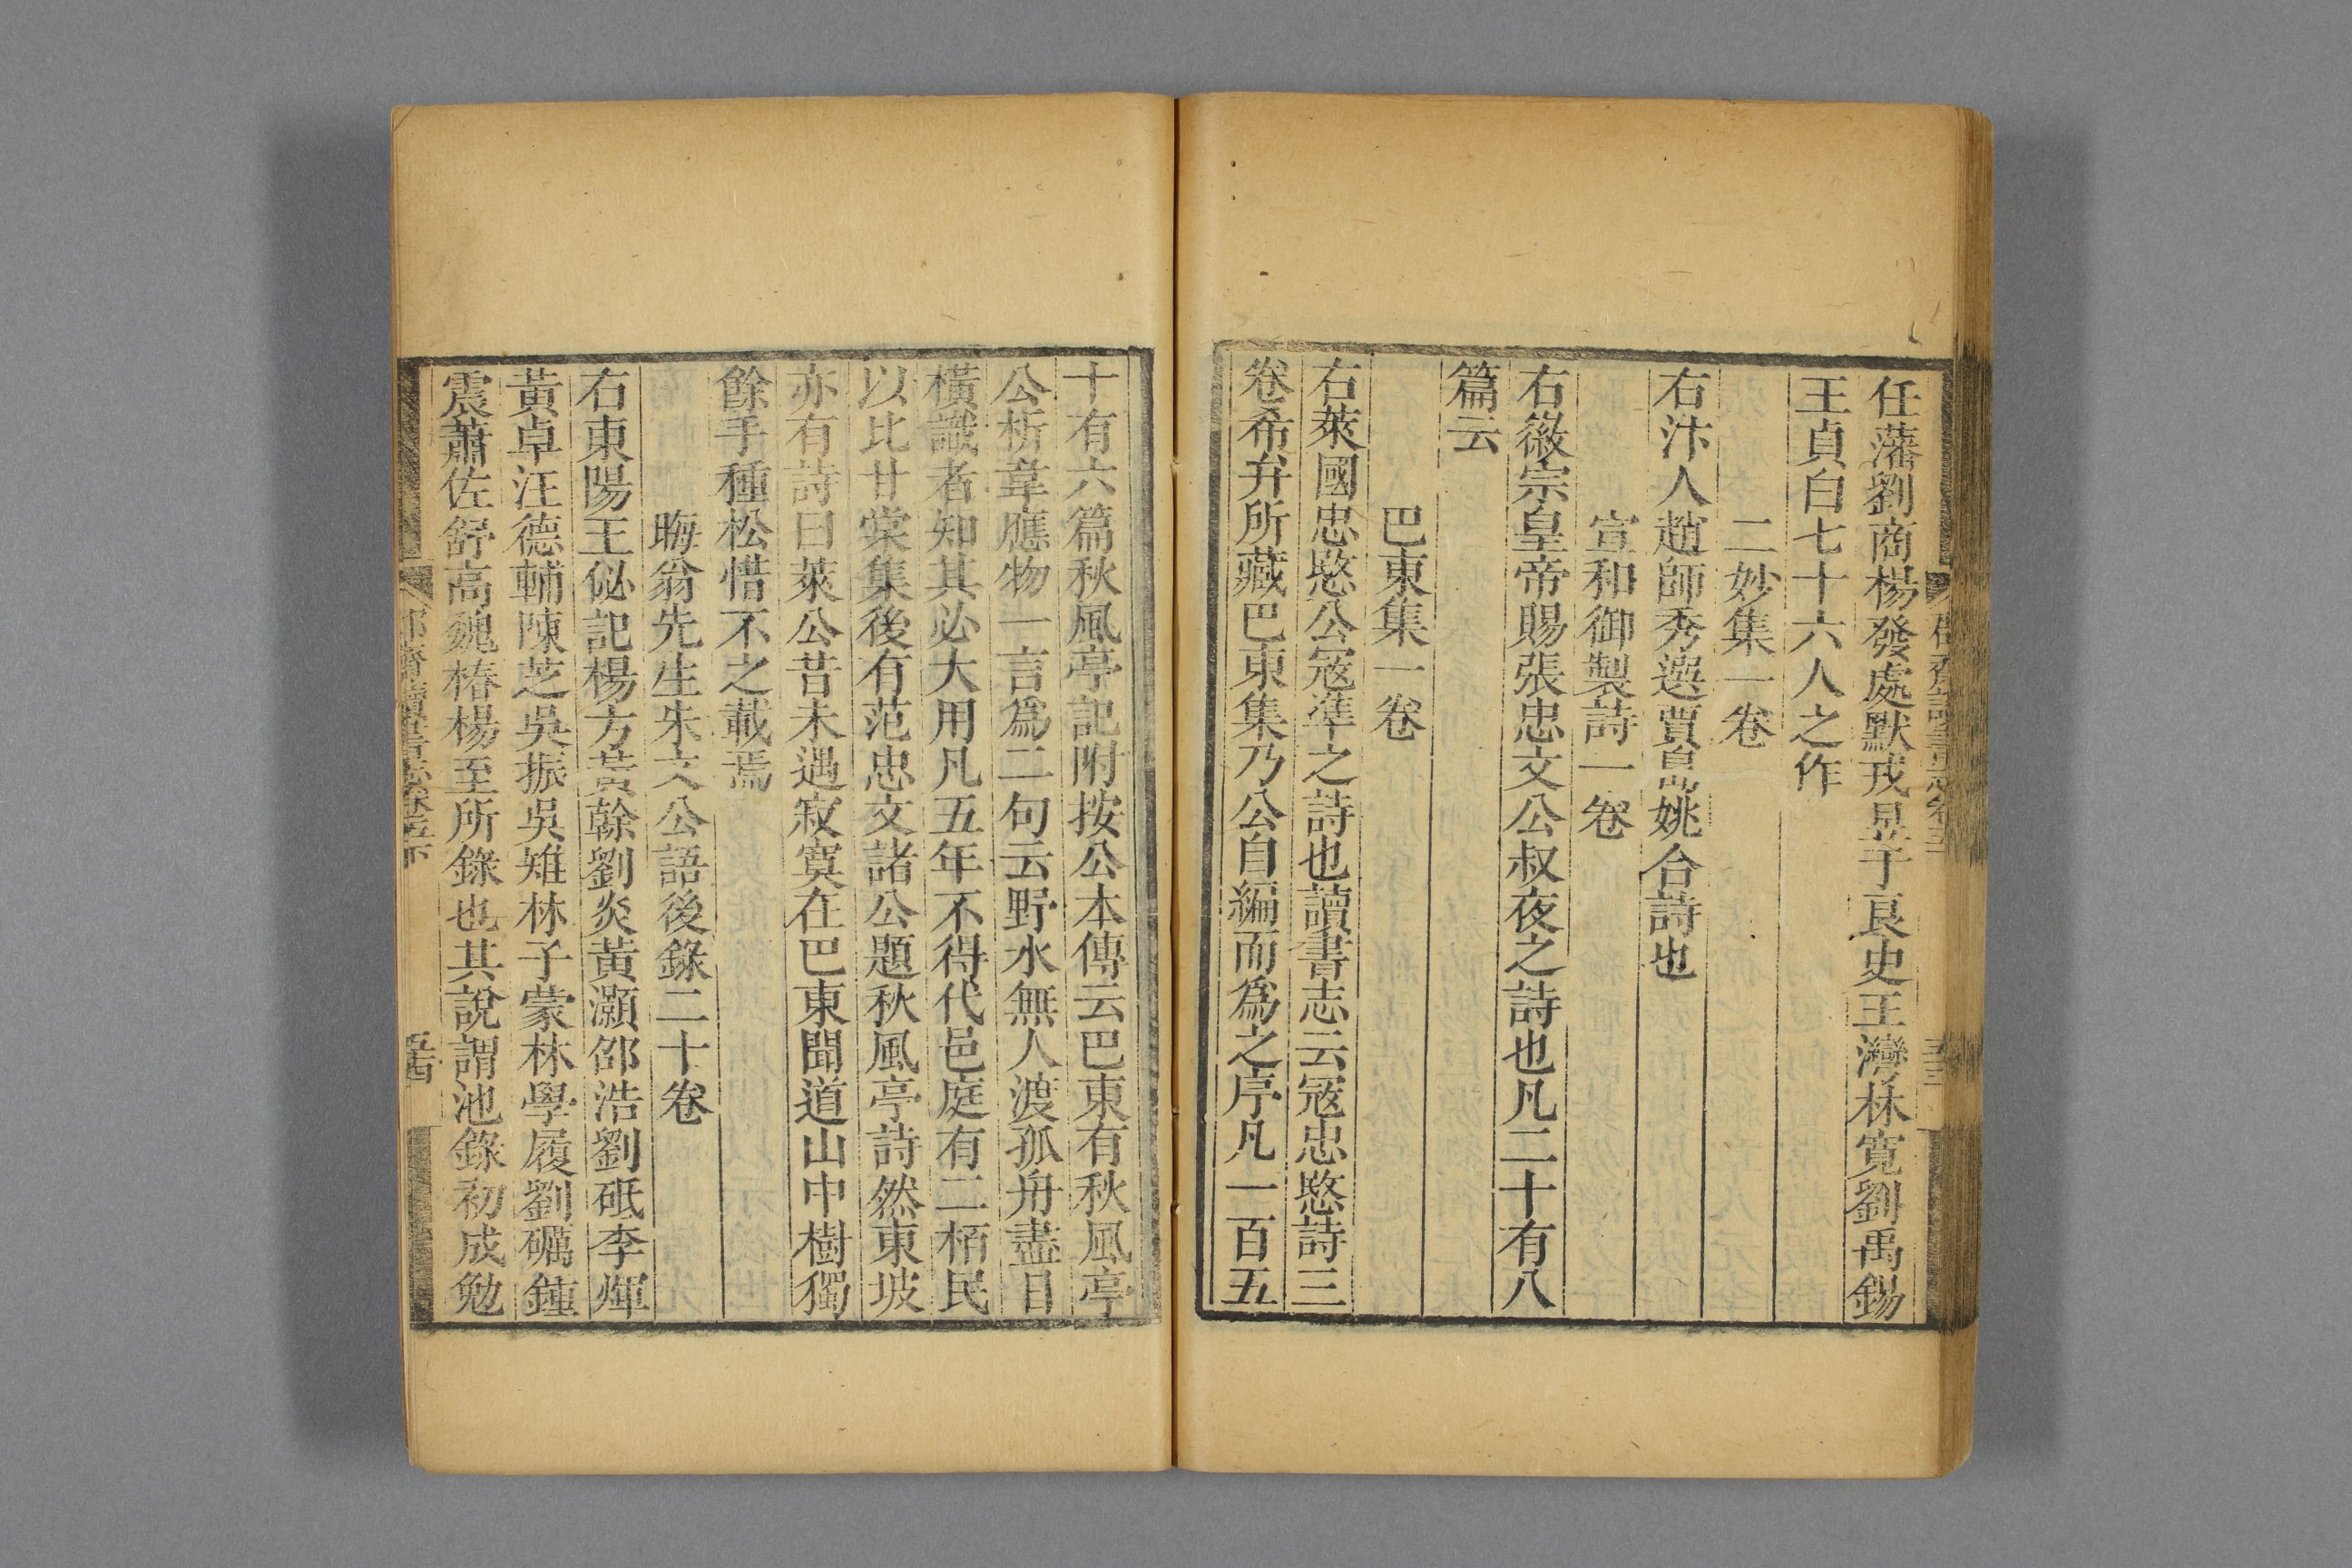 任藩劉商楊發處默戎昱于良史王灣林寬劉禹錫
王貞白七十六人之作
二妙集一卷
右汴人趙師秀選賈島姚合詩也
宣和御製詩一卷
右徽宗皇帝賜張忠文公叔夜之詩也凡二十有八
篇云
巴東集一卷
右萊國忠愍公寇準之詩也讀書志云寇忠愍詩三
卷希弁所藏巴東集乃公自編而爲之序凡一百五
十有六篇秋風亭記附按公本傳云巴東有秋風亭
公析韋應物一言爲二句云野水無人渡孤舟盡日
橫識者知其必大用凡五年不得代邑庭有二栢民
以比甘棠集後有范忠文諸公題秋風亭詩然東坡
亦有詩曰萊公昔未遇寂寞在巴東聞道山中樹獨
餘手種松惜不之載焉
晦翁先生朱文公語後錄二十卷
右東陽王佖記楊方黃榦劉炎黃灝邵浩劉砥李煇
黃卓汪德輔陳芝吳振吳雉林子蒙林學履劉礪鍾
震蕭佐舒高魏椿楊至所錄也其說謂池錄初成勉
五十四